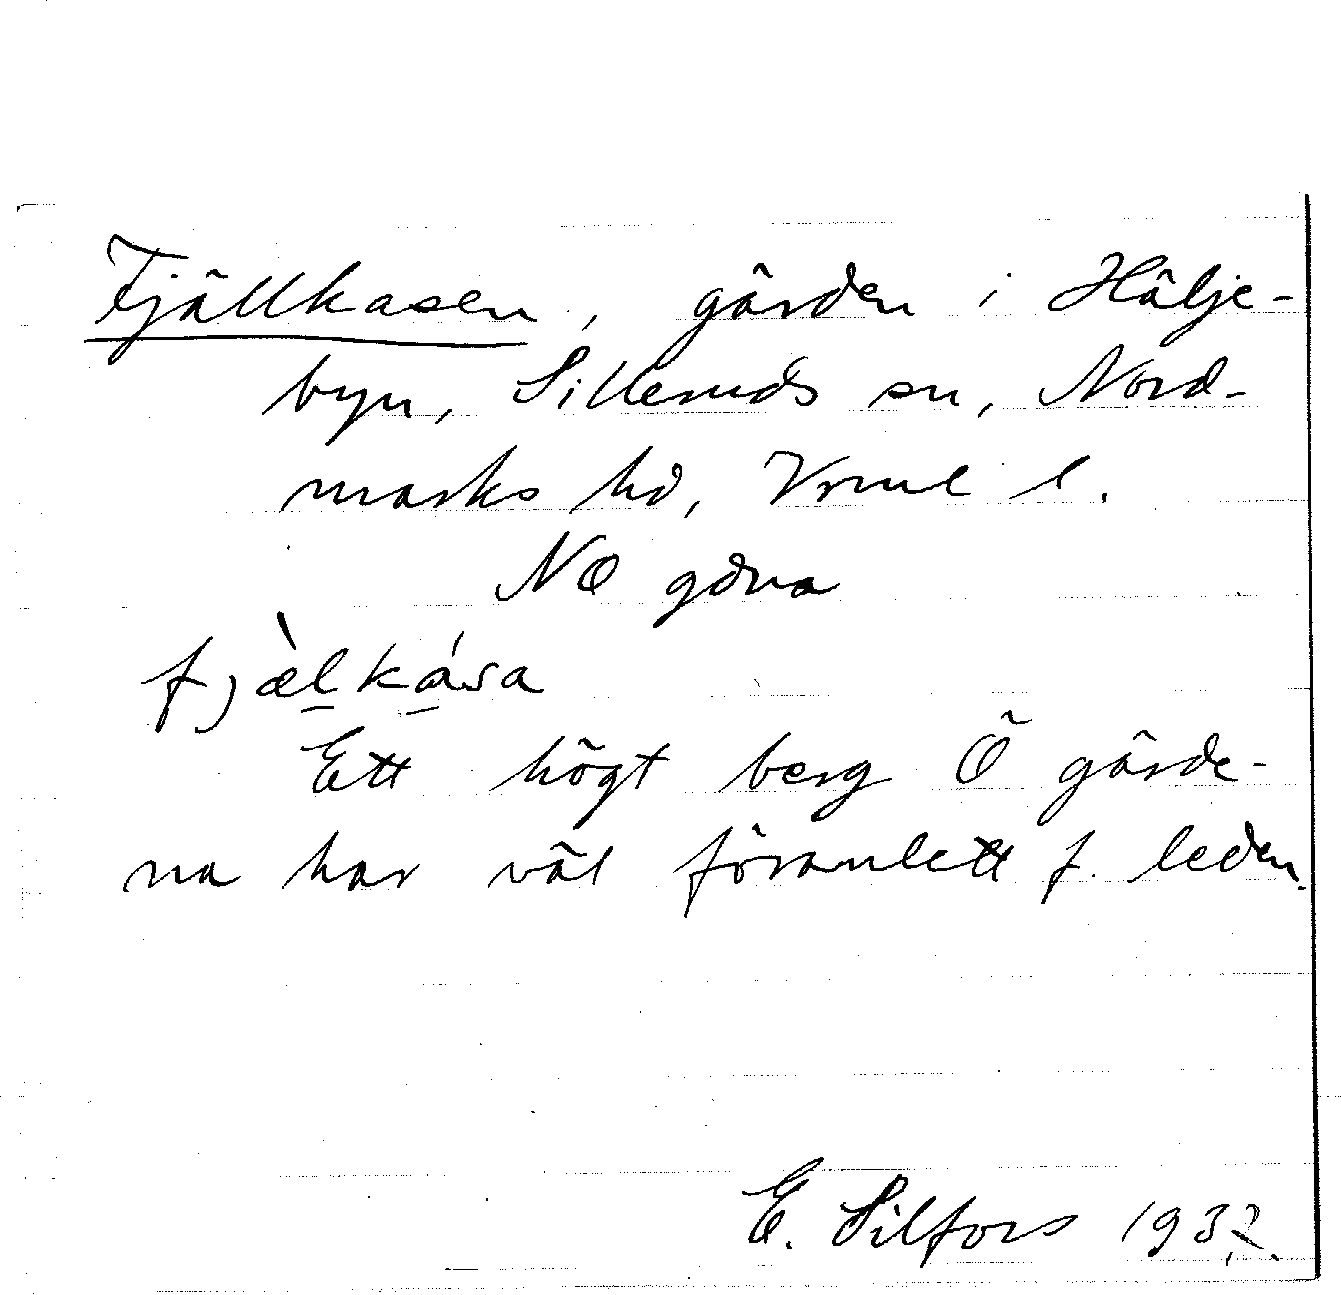 Fjällkasen, gärden i Hälje-
byn, Silleruds sn, Nord-
marks hd, Vrml l.
NO gdna
fjæ̀lká̱sa
Ett högt berg Ö gärde-
na har väl föranlett f. leden.
E. Silfors 1932.